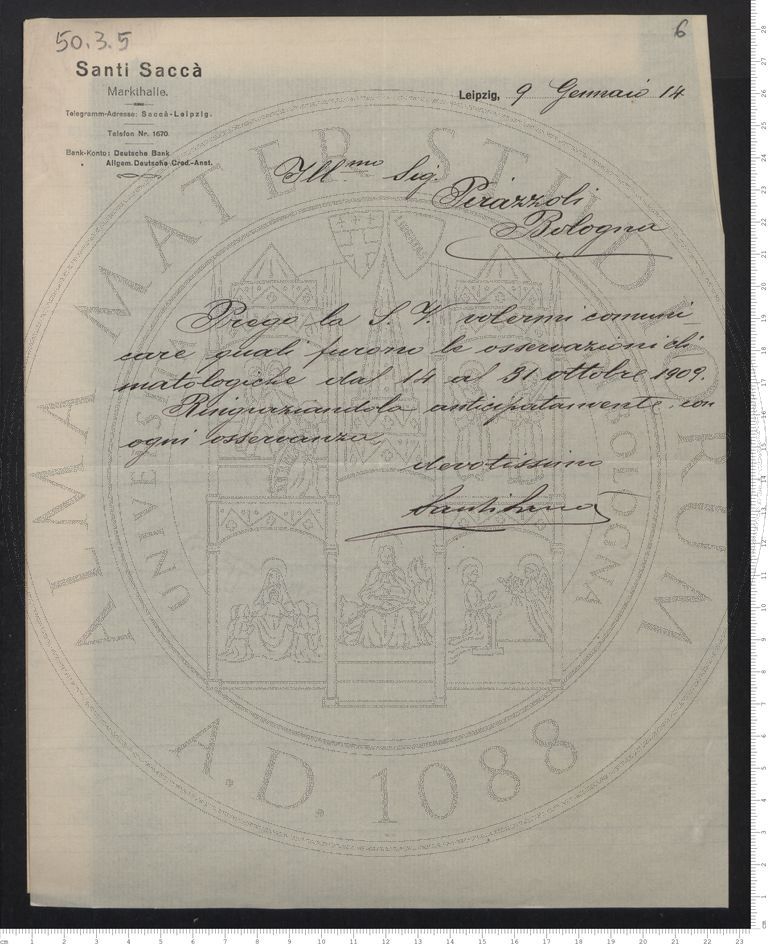 50.3.5
6
Santi Saccà
Markthalle.
Telegramm-Adresse: Saccà-Leipzig.
Telefon Nr. 1670.
Bank-Konto: Deutsche Bank
" Allgem. Deutsche Cred.-Anst.
Leipzig, 9 Gennaio 14
Ill.mo Sig.
Pirazzoli
Bologna
Prego la S. V. volermi comuni
care quali furono le osservazioni cli
matologiche dal 14 al 31 ottobre 1909.
Ringraziandola anticipatamente, con
ogni osservanza,
devotissimo
Santi Saccà
ALMA MATER STUDIORUM
UNIVERSITÀ BOLOGNA
A.D. 1088